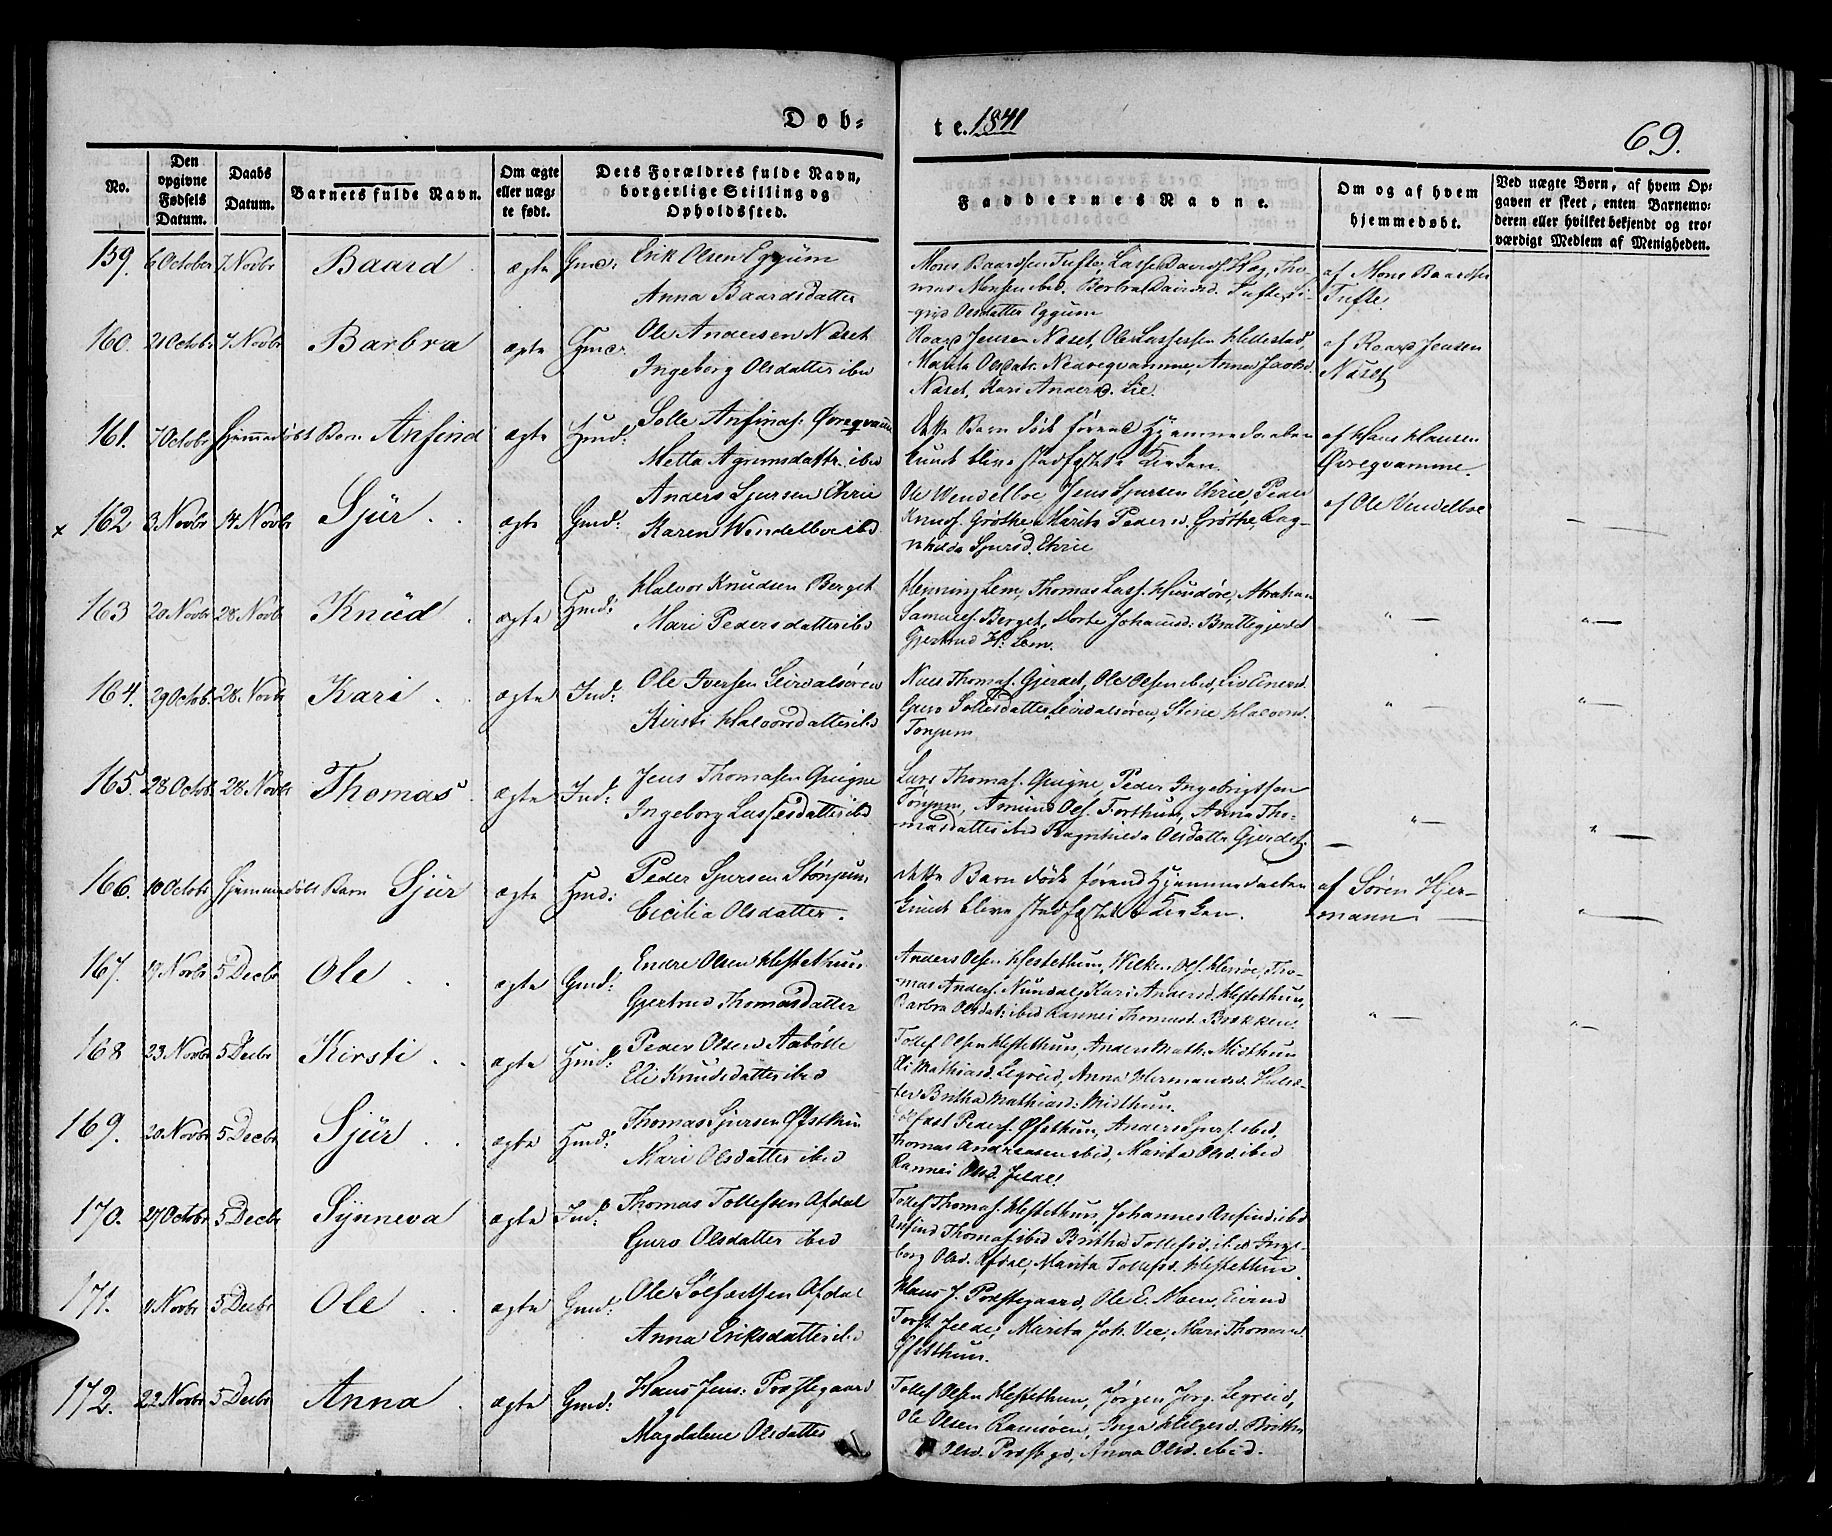 Dob-
te. 1841
69.
No.
Den opgivne Fødsels Datum.
Daabs Datum.
Barnets fulde Navn.
Om ægte eller uægte født.
Dets Forældres fulde Navn, borgerlige Stilling og Opholdssted.
Faddernes Navne.
Om og af hvem hjemmedøbt.
Ved uægte Børn, af hvem Opgaven er skeet, enten Barnemoderen eller hvilket bekjendt og troværdigt Medlem af Menigheden.
159. 6 October 7 Novbr Baard ægte Gmd: Erik Olsen Eggum
Anna Baardsdatter
Mons Baardsen Tufte, Lasse Davids. Hag, Tho-
mas Monsen ibid. Berbra Davidsd. Tufte, Si-
grid Olsdatter Eggum
af Mons Baardsen
Tufte.
160. 21 Octobr 7 Novbr Barbra ægte Gmd: Ole Andersen Næset
Ingeborg Olsdatter ibid
Roar Jensen Næset, Ole Lassessen Hillestad,
Marita Olsdatr. Nedreqvamme, Anna Jacobsd.
Næset, Kari Andersd. Lie.
af Roar Jensen
Næset
161. 7 Octobr Hjemmedøbt Barn Anfind ægte Hmd: Tolle Anfinds: Øvreqvam
Metta Agrimsdattr. ibid
dette Barn døde førend Hjemmedaaben
kunde blive stadfæstet i Kirken.
af Hans Hansen
Øvreqvamme.
x 162 3 Novbr 14 Novbr Sjür ægte Gmd: Anders Sjursen Ehrie
Karen Wendelboe ibd
Ole Wendelboe, Jens Sjursen Ehrie, Peder
Knuds. Grøthe, Marita Pedersd. Grøthe, Rag-
nhilda Sjursd. Ehrie
af Ole Vendelboe
163 20 Novbr 28 Novbr Knüd ægte Hmd: Halvor Knudsen Berget
Mari Pedersdatter ibd
Henning Lem, Thomas Lass. Hundøre, Abraham
Samuels. Berget, Dorte Johannd: Brattegjerdet
Gjertrud H: Lem.
" —
" —
164. 29 Octob. 28. Novb Kari ægte Ind: Ole Iversen Leirdalsøren
Kirsti Halvorsdatter ibd
Niels Thomas. Gjerdet, Ole Olsen ibid, Liv Einersd.
Guro Tollesdatter Leirdalsøren, Stine Halvorsd.
Tonjum
" —
" —
165. 28 Octob. 28 Novbr Thomas ægte Ind: Jens Thomasen Qvigne
Ingeborg Lassesdatter ibd
Lars Thomas. Qvigne, Peder Ingebrigtsen
Tønjum, Amund Ols. Forthun, Anna Tho-
masdatter ibid Ragnhilda Olsdattr Gjerdet
" —
" —
166. 10 Octobr Hjemmedøbt Barn Sjür ægte Hmd: Peder Sjursen Stønjum
Cicilia Olsdatter.
dette Barn døde førend Hjemmedaaben
kunde blive stadfæstet i Kirken.
af Søren Hjer-
mann
" —
167. 17 Novbr 5 Decbr Ole ægte Gmd: Endre Olsen Hestethun
Gjertrud Thomasdatter
Anders Olsen Hestethun, Wilken Ols. Henjøe, Tho-
mas Anders. Nundal, Kari Andersd. Hestethun,
Barbra Olsdat: ibid Rannei Thomasd. Brækken.
" —
" —
168 23 Novbr 5 Decbr Kirsti ægte Hmd: Peder Olsen Aabøtte
Eli Knudsdatter ibid
Tollef Olsen Hestethun, Anders Math. Midthun
Eli Mathiasd. Legreid, Anna Hermandsd. Hulsæ-
ter Britha Mathiasd: Midthun.
169. 20 Novbr 5 Decbr Sjür ægte Hmd: Thomas Sjursen Øfstthun
Mari Olsdatter ibid
Solfæst Peders. Øfstthun, Anders Sjurs. ibid,
Thomas Andreasen ibid, Marita Olsd. ibid
Rannei Olsd. Jelde.
170. 27 Octobr 5 Decbr Synneva ægte Ind: Thomas Tollefsen Afdal
Guro Olsdatter ibid
Tollef Thomas. Hestethun, Johannes Anfinds. ibid
Anfind Thomas. ibid Britha Tollefsd. ibid Inge-
borg Olsd. Afdal, Marita Tollefsd. Hestethun.
171. 11 Novbr 5 Decbr Ole ægte Gmd: Ole Solfæstsen Afdal
Anna Eriksdatter ibid
Hans J. Præstegaard, Ole E. Moen, Eivind
Torst. Jelde, Marita Joh. Vee, Mari Thomasd.
Øfstthun.
172. 22 Novbr 5 Decbr Anna ægte Gmd: Hans Jens: Præstegaard
Magdalene Olsdatter
Tollef Olsen Hestethun, Jørgen Jorg. Legreid,
Ole Olsen Ramsøen, Inga Helgesd. Britha
Olsd. Præstegd, Anna Olsd. ibid.